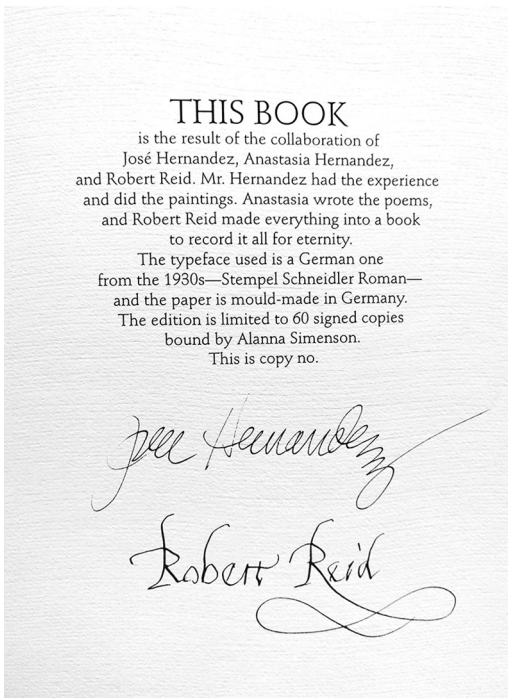 THIS BOOK
is the result of the collaboration of
José Hernandez, Anastasia Hernandez,
and Robert Reid. Mr. Hernandez had the experience
and did the paintings. Anastasia wrote the poems,
and Robert Reid made everything into a book
to record it all for eternity.
The typeface used is a German one
from the 1930s—Stempel Schneidler Roman—
and the paper is mould-made in Germany.
The edition is limited to 60 signed copies
bound by Alanna Simenson.
This is copy no.
Jose Hernandez
Robert Reid